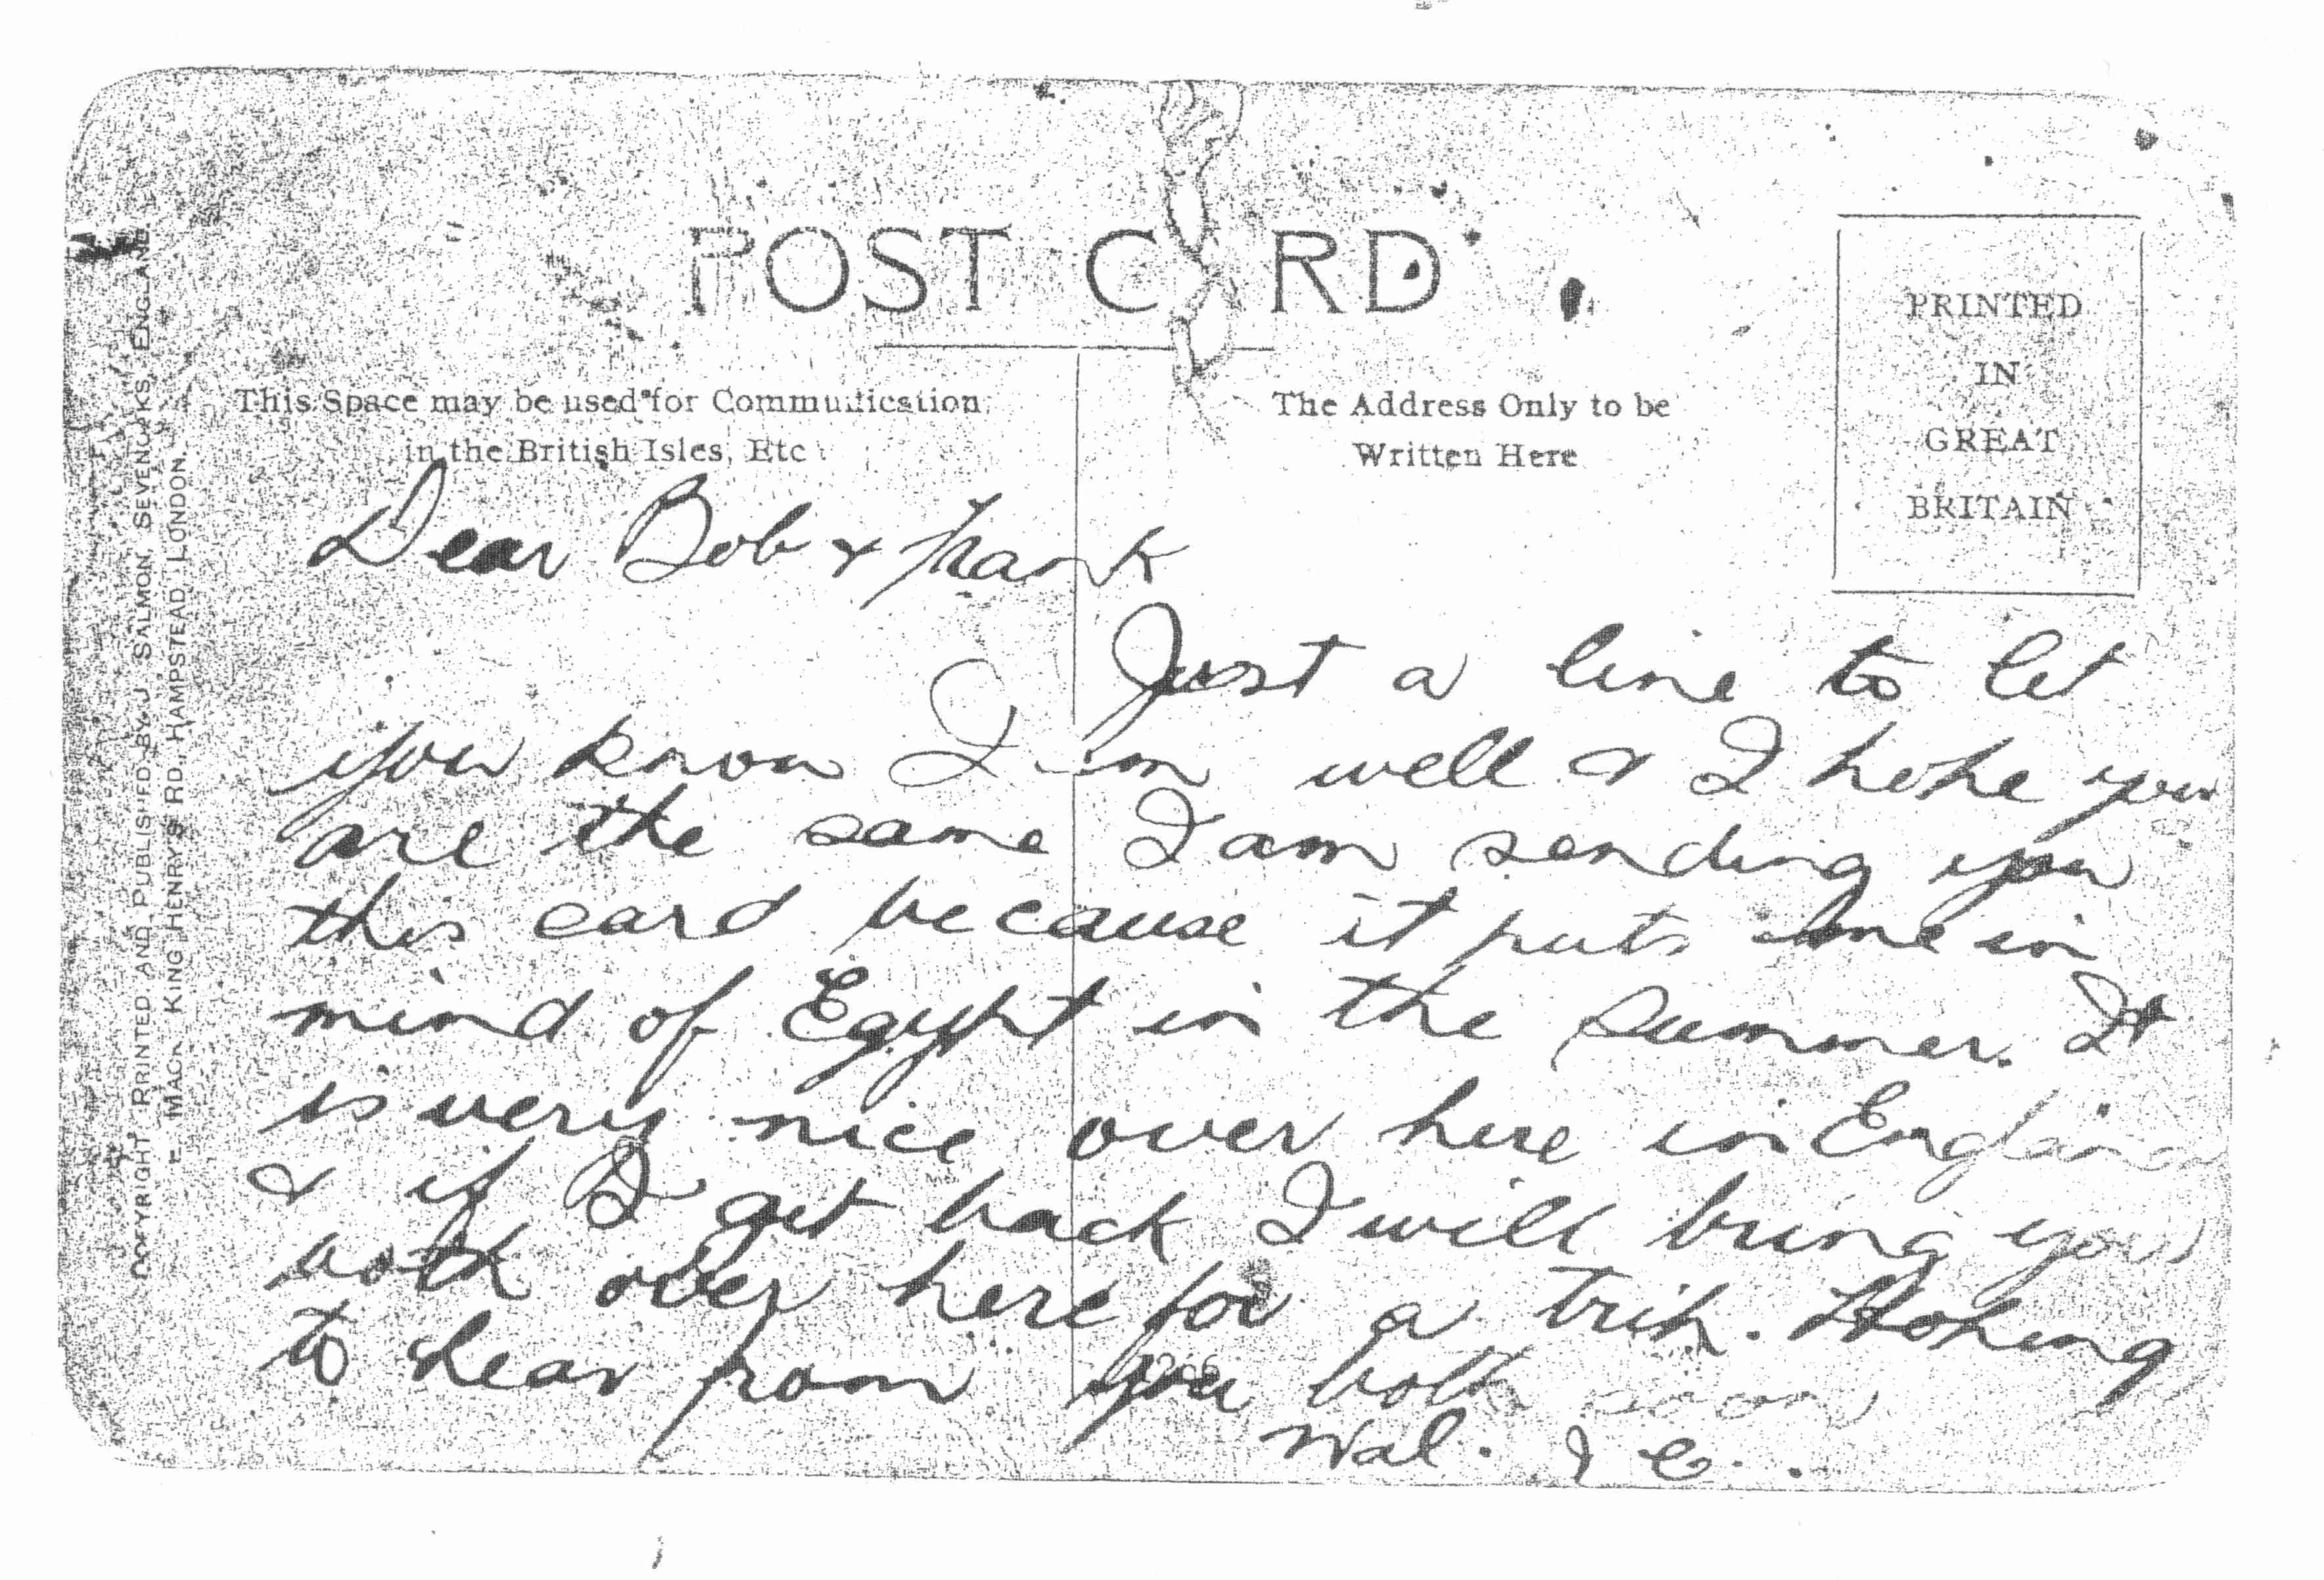 POST CARD
This Space may be used for Communication
in the British Isles, Etc
The Address Only to be
Written Here
PRINTED
IN
GREAT
BRITAIN
COPYRIGHT PRINTED AND PUBLISHED BY J. SALMON, SEVENOAKS, ENGLAND.
E MACK KING HENRY'S RD, HAMPSTEAD, LONDON.
Dear Bob & Frank
Just a line to let
you know I am well & I hope you
are the same I am sending you
this card because it puts me in
mind of Egypt in the Summer. It
is very nice over here in England
& if I get back I will bring you
both over here for a trip. Hoping
to hear from you both soon
Wal.